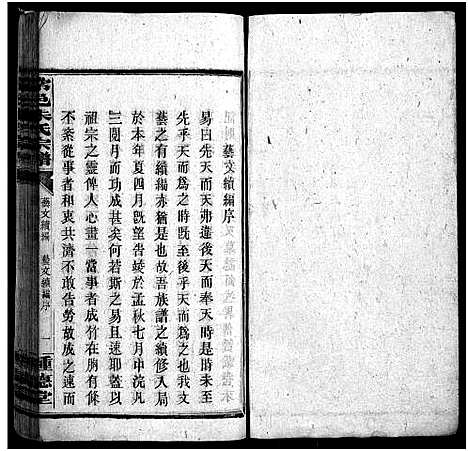 藝文續編序
易曰先天而天弗違後天而奉天時時未至
先乎天而為之時既至後乎天而為之我文
藝之有續編亦猶是也故吾族譜之續修入局
於本年夏四月既望告竣於孟秋七月中浣凡
三閱月而功成甚矣何若斯之易且速耶蓋以
祖宗之靈俾人心畫一當事者成竹在胸有條
不紊從事者和衷共濟不敢告勞故成之速而
朱氏宗譜
藝文續編 藝文續編序
一
種德堂